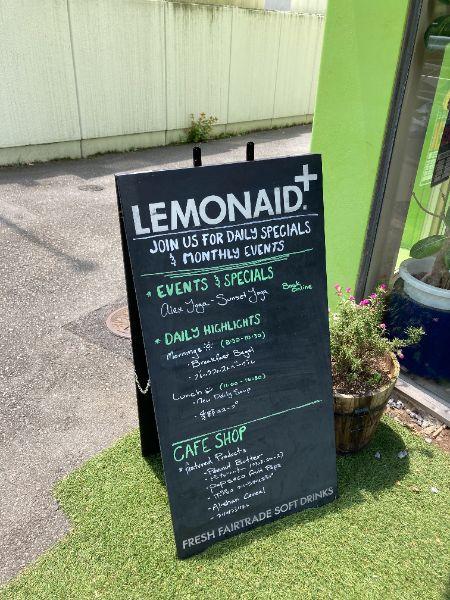 LEMONAID+
JOIN US FOR DAILY SPECIALS
& MONTHLY EVENTS
* EVENTS & SPECIALS
Alex Yoga - Sunset Yoga Book Online
* DAILY HIGHLIGHTS
Mornings (8:30-10:30)
- Breakfast Bagel
Lunch (11:00-16:30)
- New Daily Soup
CAFE SHOP
* Featured Products
- Peanut Butter
- Alishan Cereal
FRESH FAIRTRADE SOFT DRINKS